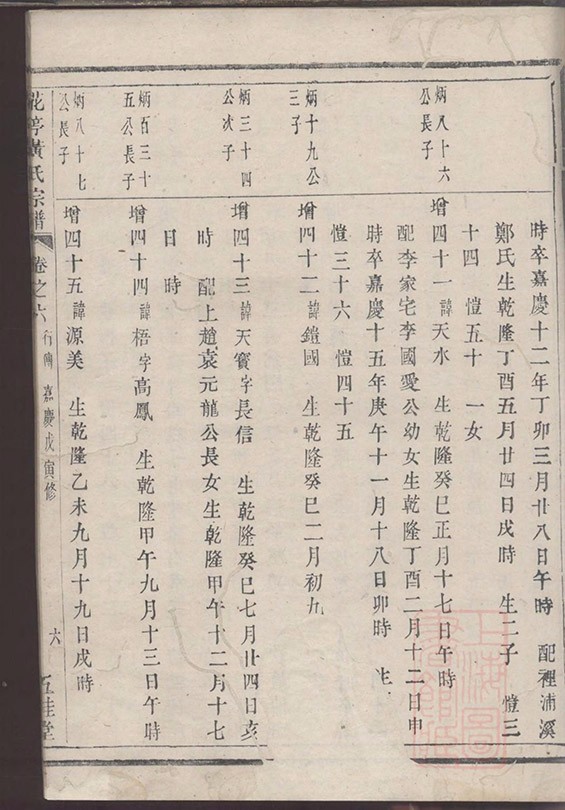 時卒嘉慶十二年丁卯三月廿八日午時　配裡浦溪
鄭氏生乾隆丁酉五月廿四日戌時　生二子　愷三
十四　愷五十　一女
炳八十六
公長子
增四十一諱天水　生乾隆癸巳正月十七日午時
配李家宅李國愛公幼女生乾隆丁酉二月十二日申
時卒嘉慶十五年庚午十一月十八日卯時　生
愷三十六　愷四十五
炳十九公
三子
增四十二諱鎧國　生乾隆癸巳二月初九
炳三十四
公次子
增四十三諱天寳字長信　生乾隆癸巳七月廿四日亥
時　配上趙袁元龍公長女生乾隆甲午十二月十七
日　時
炳百三十
五公長子
增四十四諱梧字高鳳　生乾隆甲午九月十三日午時
炳八十七
公長子
增四十五諱源美　生乾隆乙未九月十九日戌時
花亭黃氏宗譜　卷之六　行傳　嘉慶戊寅修　六　五桂堂
上海圖書館藏